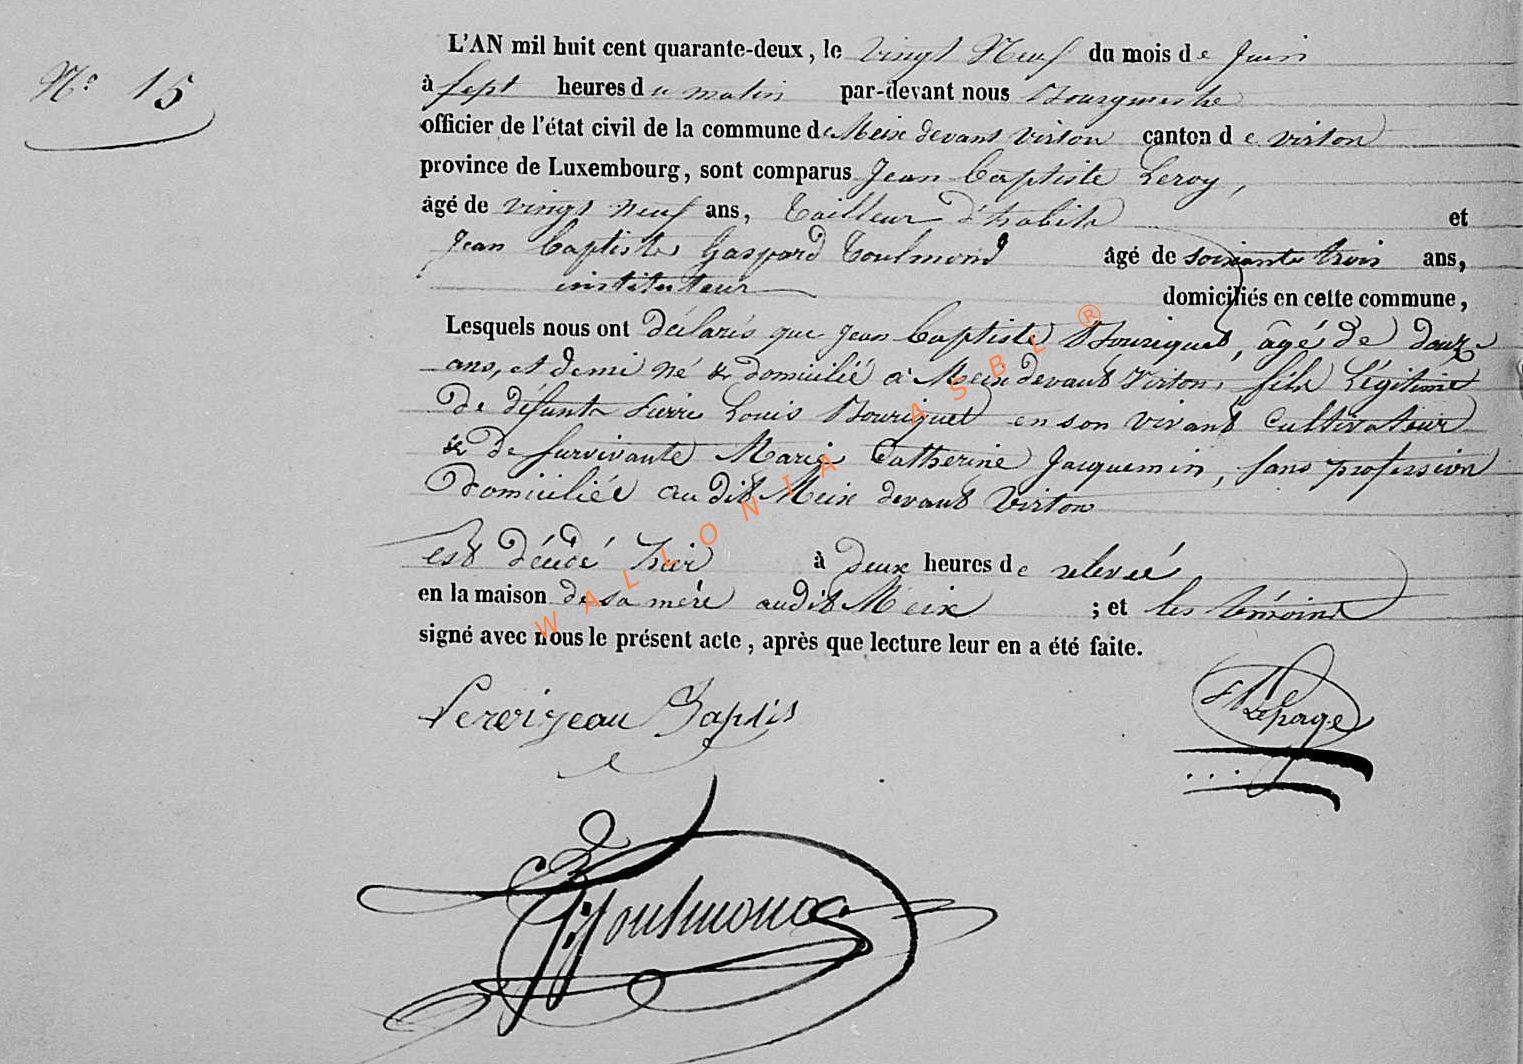 N° 15
L'AN mil huit cent quarante-deux, le vingt Neuf du mois de Juin
à sept heures du matin par-devant nous Bourgmestre
officier de l'état civil de la commune de Meix devant Virton canton de virton
province de Luxembourg, sont comparus Jean Baptiste Leroy,
âgé de vingt neuf ans, Tailleur d'habits et
Jean Baptiste Gaspard Toulmond âgé de soixante trois ans,
instituteur domiciliés en cette commune,
Lesquels nous ont déclarés que Jean Baptiste Bouriguet, âgé de douze
ans, et demi né & domicilié à Meix devant Virton, fils Légitime
De défunt Pierre Louis Bouriguet en son vivant Cultivateur
& De survivante Marie Catherine Jacquemin, sans profession
Domiciliée au dit Meix devant Virton
est Décédé hier à Deux heures de relevée
en la maison de sa mère audit Meix ; et les témoins
signé avec nous le présent acte, après que lecture leur en a été faite.
Leroi jeau Baptis
Lepage
Toulmond
WALLONIA ASBL ®